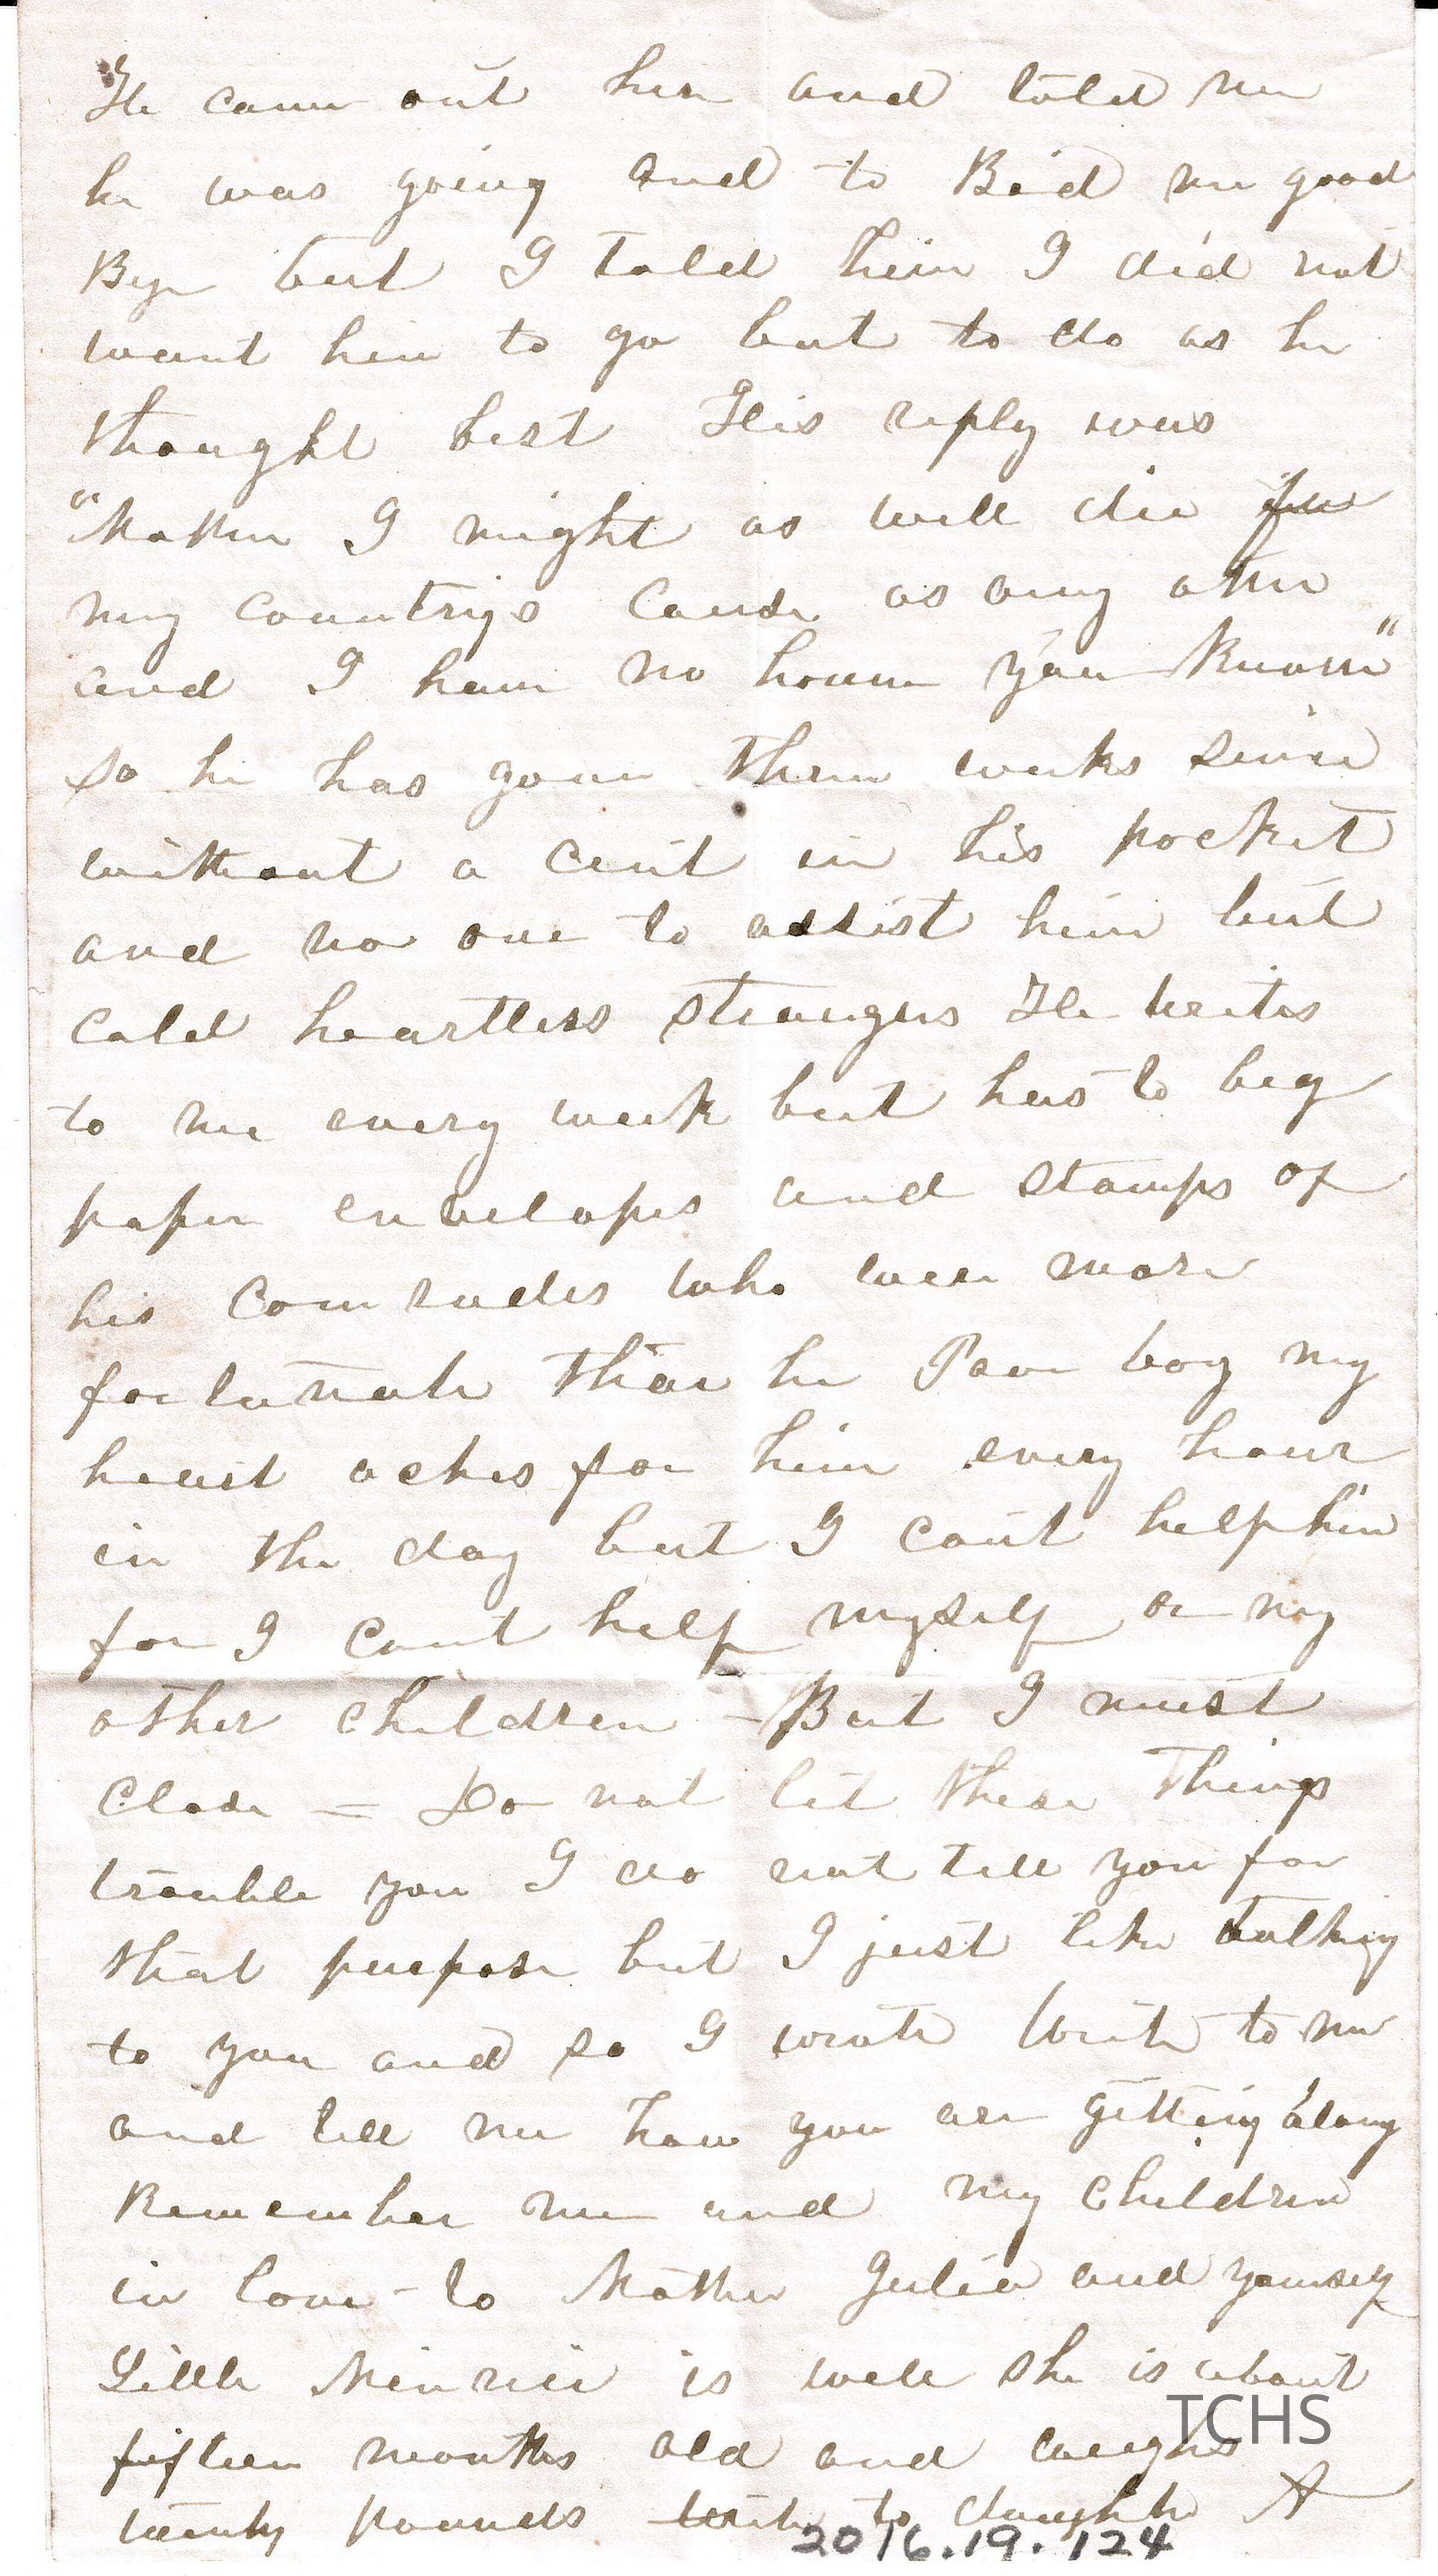 He came out here and told me
he was going and to Bid me good
Bye but I told him I did not
want him to go but to do as he
thought best His reply was
"Mother I might as well die for
my countrys cause as any other
and I have no home you know"
so he has gone three weeks since
without a cent in his pocket
and no one to assist him but
cold heartless strangers He writes
to me every week but has to beg
paper envelopes and stamps of
his comrades who were more
fortunate than he Poor boy my
heart aches for him every hour
in the day but I cant help him
for I cant help myself or my
other children - But I must
close = Do not let these things
trouble you I do not tell you for
that purpose but I just like talking
to you and so I wrote Write to me
and tell me how you are getting along
Remember me and my children
in love - to Mother Julia and yourself
Little Minnie is well she is about
fifteen months old and weighs
twenty pounds write to daughter A
TCHS
2016.19.124